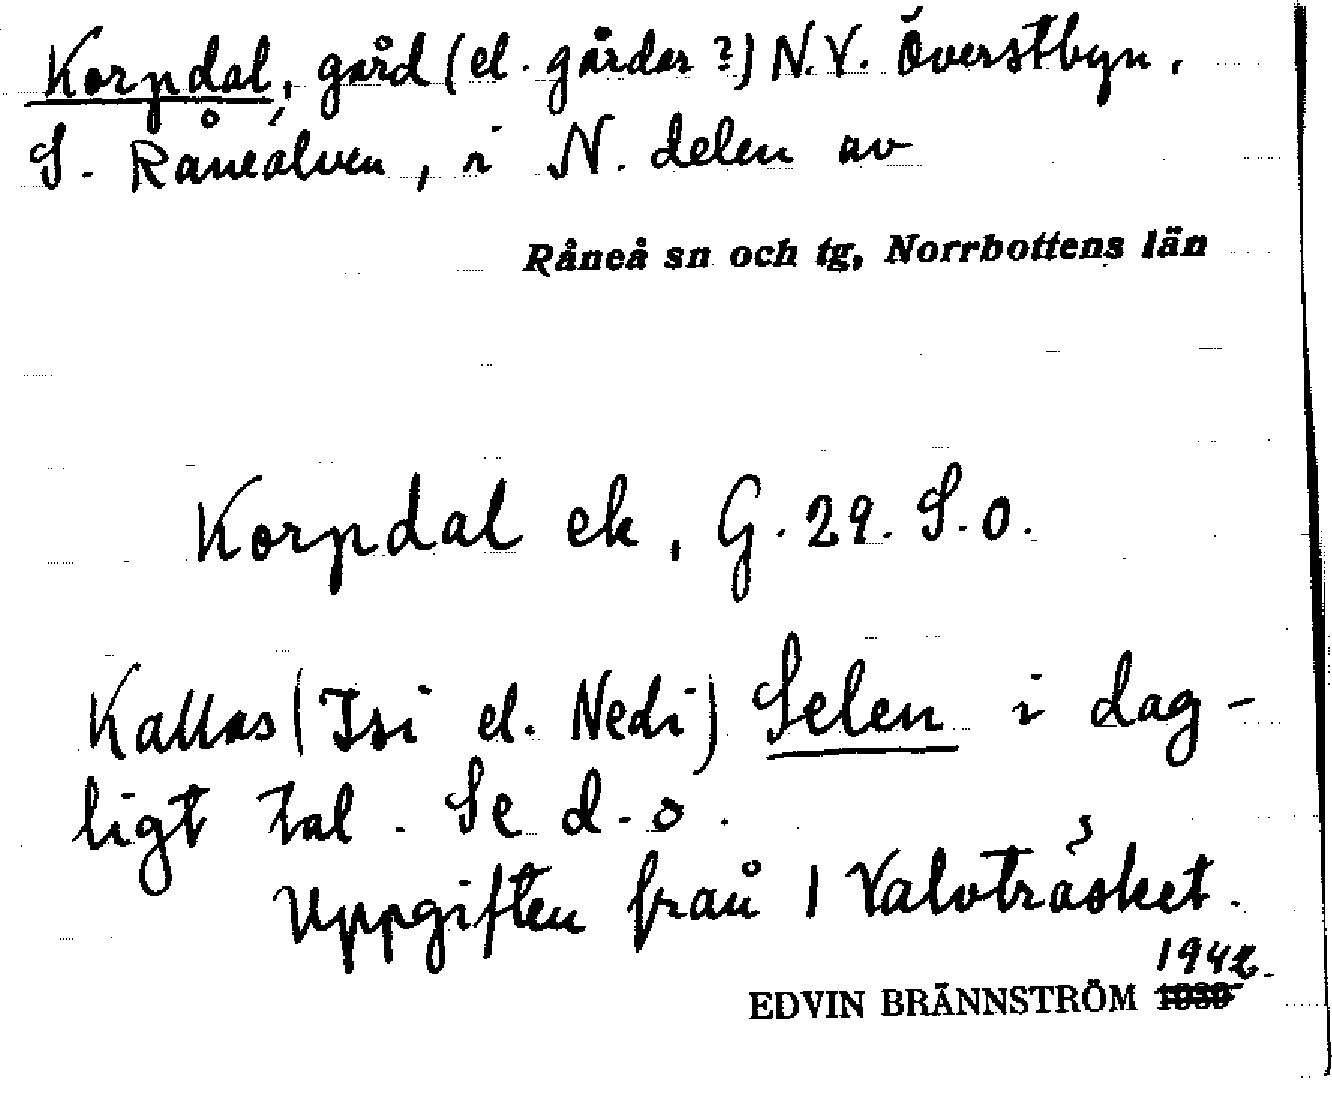 Korpdal, gård (el. gårdar ?) N.V. Överstbyn,
S. Råneälven, i N. delen av
Råneå sn och tg, Norrbottens län
Korpdal ek, G. 29. S.o.
Kallas (Isi el. Nedi) Selen i dag-
ligt tal. Se d.o.
Uppgiften från 1 Valvträsket.
1942
EDVIN BRÄNNSTRÖM 1930